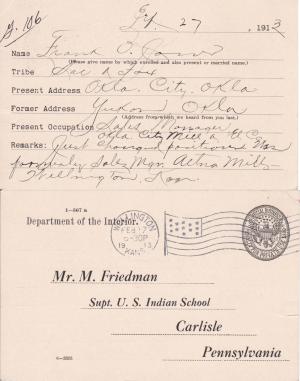 g. 106
Feby 27 1913
Name Frank O. Jones
(Please give name by which enrolled and also present or married name.)
Tribe Sac & Fox
Present Address Okla. City, Okla
Former Address Yukon Okla
(Address from which we heard from you last.)
Present Occupation Sales Manager
Okla City Mill & E Co.
Remarks: Just changed positions Was
formerly Sales Mgr. Aetna Mills
Wellington, Kan
1—567 a
Department of the Interior.
WELLINGTON
FEB 27
30P
1913
KANS.
Mr. M. Friedman
Supt. U. S. Indian School
Carlisle
Pennsylvania